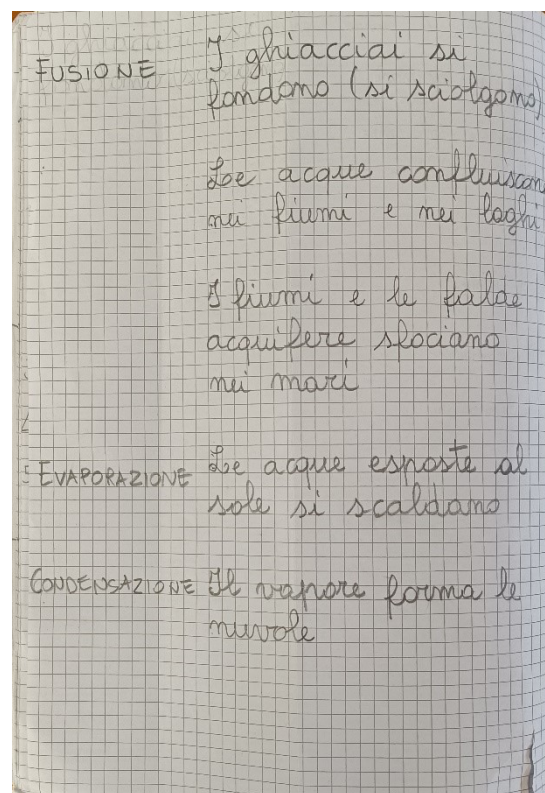 FUSIONE I ghiacciai si
fondono (si sciolgono)
Le acque confluiscon
nei fiumi e nei laghi
I fiumi e le falde
acquifere sfociano
nei mari
EVAPORAZIONE Le acque esposte al
sole si scaldano
CONDENSAZIONE Il vapore forma le
nuvole